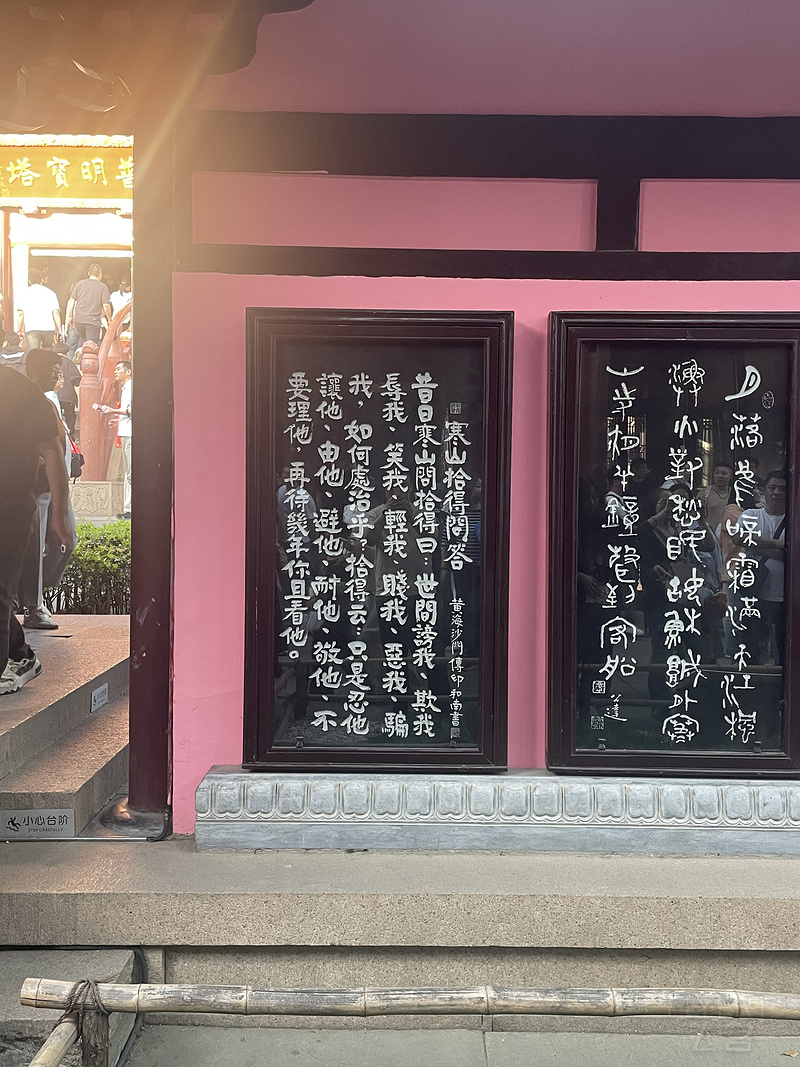 普明寶塔
月落烏啼霜滿天江楓
漁火對愁眠姑蘇城外寒
山寺夜半鐘聲到客船
寒山拾得問答
黃海沙門傳印和南書
昔日寒山問拾得曰：世間謗我、欺我
辱我、笑我、輕我、賤我、惡我、騙
我，如何處治乎？拾得云：只是忍他
讓他、由他、避他、耐他、敬他、不
要理他，再待幾年你且看他。
小心台阶
STEP CAREFULLY